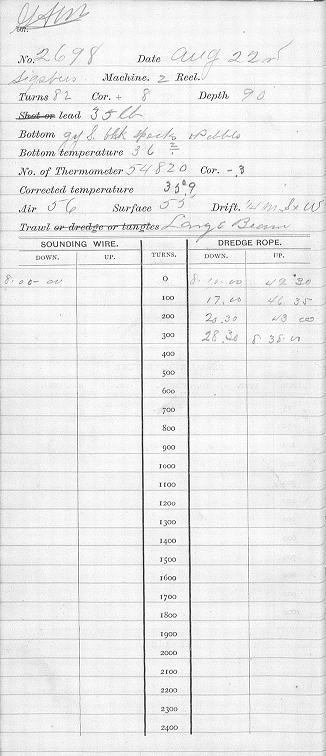 No. 2698 Date Aug 22nd
Sigsbee Machine. 2 Reel.
Turns 82 Cor. + 8 Depth 90
Shot or lead 35 lb
Bottom gy S. blk specks Pebbles
Bottom temperature 36.2
No. of Thermometer 54820 Cor. - .3
Corrected temperature 35°9
Air 56 Surface 55 Drift. 1/4 m S x W
Trawl or dredge or tangles Large Beam
SOUNDING WIRE. DREDGE ROPE.
DOWN. UP. TURNS. DOWN. UP.
8.00-00 0 8. 42 30
100 17.00 46 35
200 23.30 43 00
300 28.30 8 38.00
400
500
600
700
800
900
1000
1100
1200
1300
1400
1500
1600
1700
1800
1900
2000
2100
2200
2300
2400